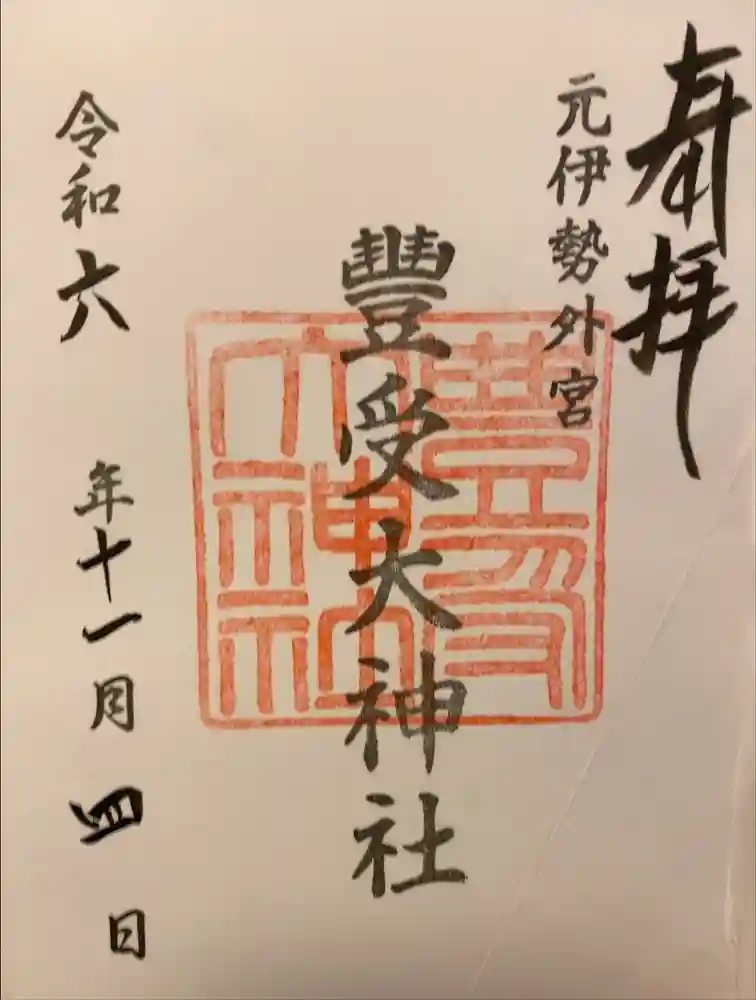 奉拝
元伊勢外宮
豐受大神社
豐受大神社
令和六年十一月四日